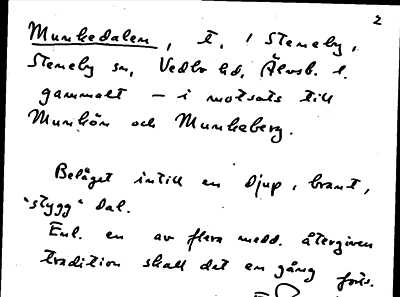 2
Munkedalen, t. i Steneby,
Steneby sn, Vedbo hd, Älvsb. l.
gammalt – i motsats till
Munkön och Munkeberg.
Beläget intill en djup, brant,
"stygg" dal.
Enl. en av flera medd. återgiven
tradition skall det en gång förts.